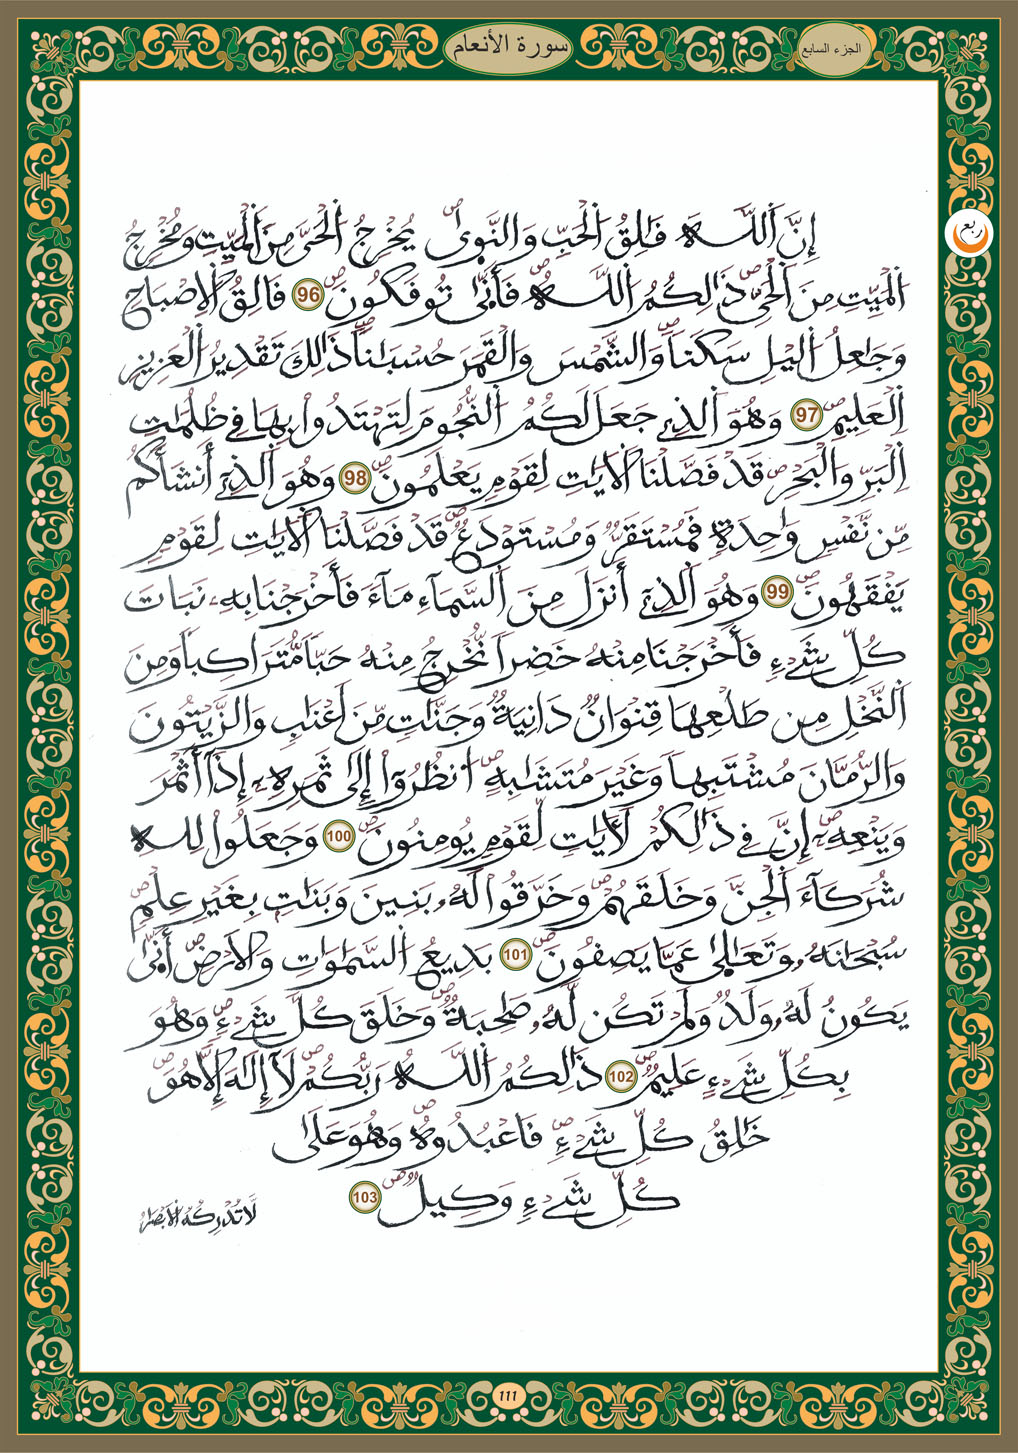 الجزء السابع
سورة الأنعام
ربع
إِنَّ اَللَّهَ فَٰلِقُ اُلْحَبِّ وَالنَّوۭىٰ يُخْرِجُ اُلْحَيَّ مِنَ اَلْمَيِّتِ وَمُخْرِجُ
اُلْمَيِّتِ مِنَ اَلْحَيِّ ذَٰلِكُمُ اُللَّهُ فَأَنّۭىٰ تُوفَكُونَ 96 فَالِقُ اُلْاِصْبَاحِ
وَجَٰعِلُ اُليْلِ سَكَناً وَالشَّمْسَ وَالْقَمَرَ حُسْبَاناً ذَٰلِكَ تَقْدِيرُ اُلْعَزِيزِ
اِلْعَلِيمِ 97 وَهُوَ اَلذِے جَعَلَ لَكُمُ اُلنُّجُومَ لِتَهْتَدُواْ بِهَا فِے ظُلُمَٰتِ
اِلْبَرِّ وَالْبَحْرِ قَدْ فَصَّلْنَا اَلْاَيَٰتِ لِقَوْمٍ يَعْلَمُونَ 98 وَهُوَ اَلذِے أَنشَأَكُم
مِّن نَّفْسٍ وَٰحِدَةٍ فَمُسْتَقَرٌّ وَمُسْتَوْدَعٌ قَدْ فَصَّلْنَا اَلْاَيَٰتِ لِقَوْمٍ
يَفْقَهُونَ 99 وَهُوَ اَلذِے أَنزَلَ مِنَ اَلسَّمَآءِ مَآءً فَأَخْرَجْنَا بِهِۦ نَبَاتَ
كُلِّ شَےْءٍ فَأَخْرَجْنَا مِنْهُ خَضِراً نُّخْرِجُ مِنْهُ حَبّاً مُّتَرَاكِباً وَمِنَ
اَلنَّخْلِ مِن طَلْعِهَا قِنْوَانٌ دَانِيَةٌ وَجَنَّٰتٍ مِّنَ اَعْنَابٍ وَالزَّيْتُونَ
وَالرُّمَّانَ مُشْتَبِهاً وَغَيْرَ مُتَشَٰبِهٍ اُنظُرُوٓاْ إِلَىٰ ثَمَرِهِۦٓ إِذَآ أَثْمَرَ
وَيَنْعِهِۦٓ إِنَّ فِے ذَٰلِكُمْ لَأٓيَٰتٍ لِّقَوْمٍ يُومِنُونَ 100 وَجَعَلُواْ لِلهِ
شُرَكَآءَ اَلْجِنَّ وَخَلَقَهُمْ وَخَرَّقُواْ لَهُۥ بَنِينَ وَبَنَٰتٍ بِغَيْرِ عِلْمٍ
سُبْحَٰنَهُۥ وَتَعَٰلَىٰ عَمَّا يَصِفُونَ 101 بَدِيعُ اُلسَّمَٰوَٰتِ وَالَارْضِ أَنّۭىٰ
يَكُونُ لَهُۥ وَلَدٌ وَلَمْ تَكُن لَّهُۥ صَٰحِبَةٌ وَخَلَقَ كُلَّ شَےْءٍ وَهُوَ
بِكُلِّ شَےْءٍ عَلِيمٌ 102 ذَٰلِكُمُ اُللَّهُ رَبُّكُمْ لَآ إِلَٰهَ إِلَّا هُوَ
خَٰلِقُ كُلِّ شَےْءٍ فَاعْبُدُوهُ وَهُوَ عَلَىٰ
كُلِّ شَےْءٍ وَكِيلٌ 103
لَّا تُدْرِكُهُ اُلَابْصَٰرُ
111